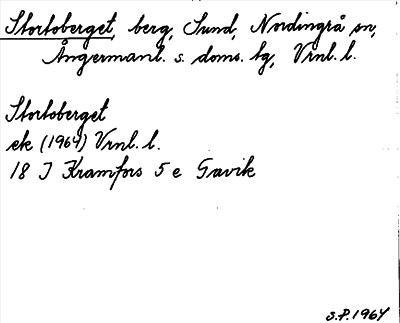 Stortoberget, berg, Sund, Nordingrå sn,
Ångermanl. s. doms. tg, Vrnl. l.
Stortoberget
ek (1964) Vrnl. l.
18 J Kramfors 5 e Gavik
S.P. 1964